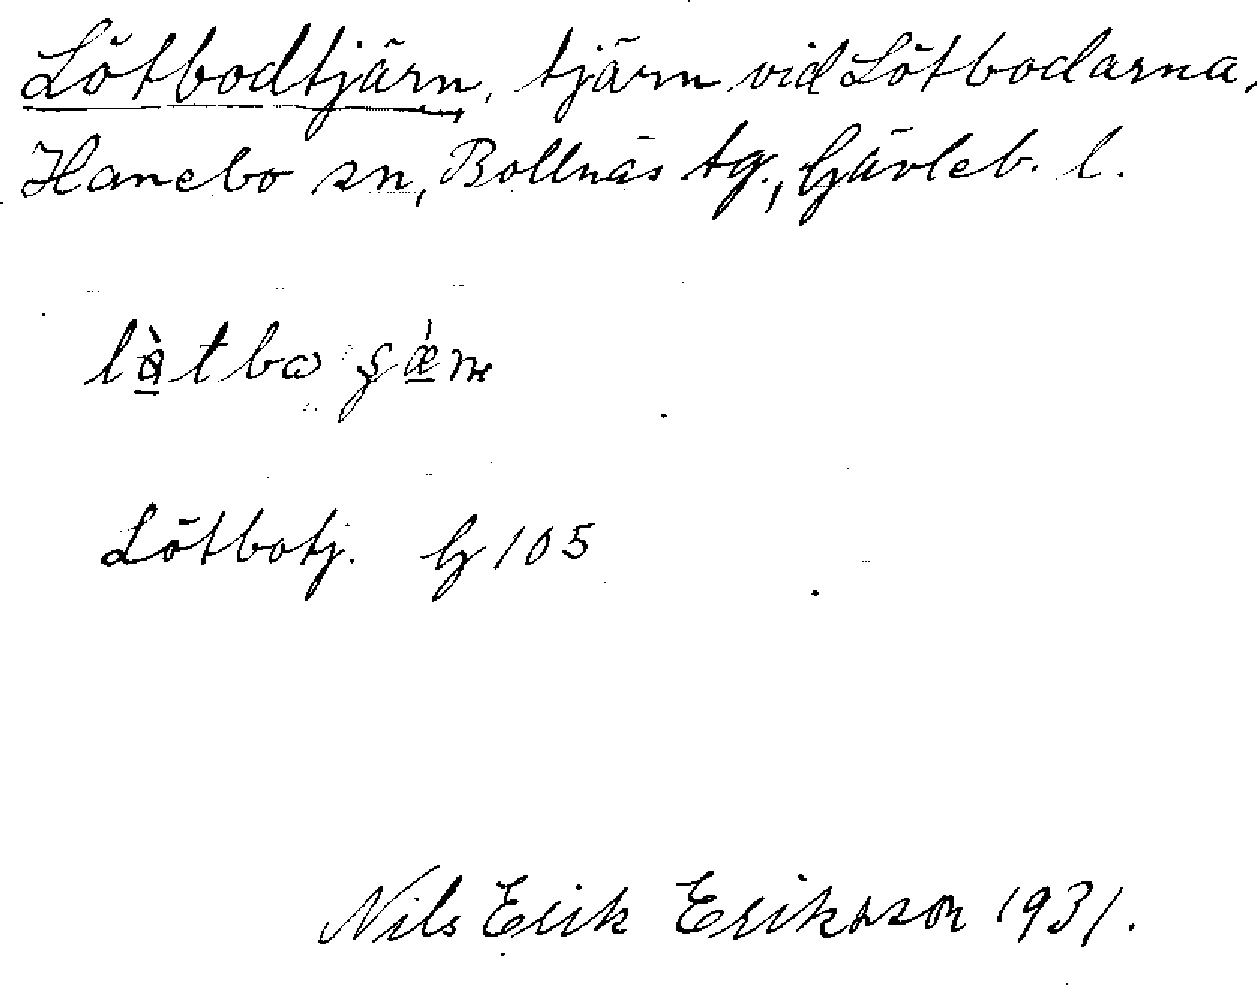 Lötbodtjärn, tjärn vid Lötbodarna,
Hanebo sn, Bollnäs tg., Gävleb. l.
Lötbotj. G 105
Nils Erik Eriksson 1931.